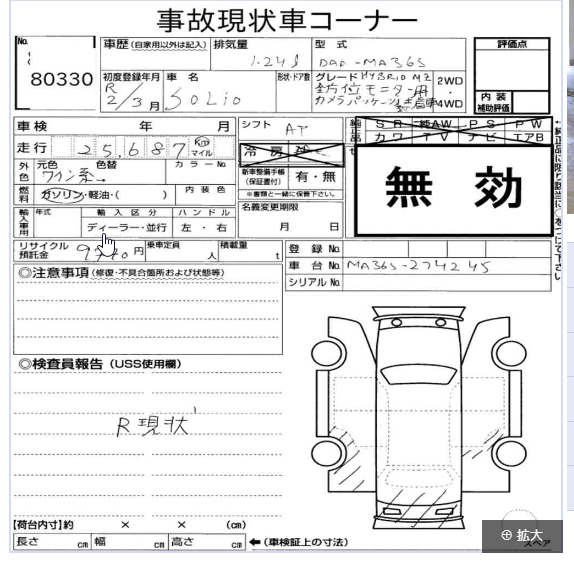 事故現状車コーナー
No. 80330
車歴 (自家用以外は記入)
排気量 1.24 ℓ
型式 DAA-MA36S
評価点
初度登録年月 R 2/3月
車名 SOLIO
形状・ドア数
グレード HYBRID MZ
全方位モニター用
カメラパッケージ
2WD
・
4WD
内装
補助評価
車検 年 月
シフト AT
純正品
SR 純AW PS PW
カワ TV ナビ エアB
走行 25,687 Km マイル
冷房
外色 元色 ワイン系 色替 カラーNo.
燃料 ガソリン・軽油・( ) 内装色
新車整備手帳 (保証書付) 有・無
※書類と一緒に保管下さい。
無効
輸入車用 年式 輸入区分 ディーラー・並行 ハンドル 左・右
名義変更期限 月 日
リサイクル預託金 円 乗車定員 人 積載量 t
登録No.
車台No. MA36S-274245
シリアルNo.
◎注意事項 (修復・不具合箇所および状態等)
◎検査員報告 (USS使用欄)
R現状
【荷台内寸】約 × × (cm)
長さ cm 幅 cm 高さ cm ←(車検証上の寸法)
スペア
⊕ 拡大